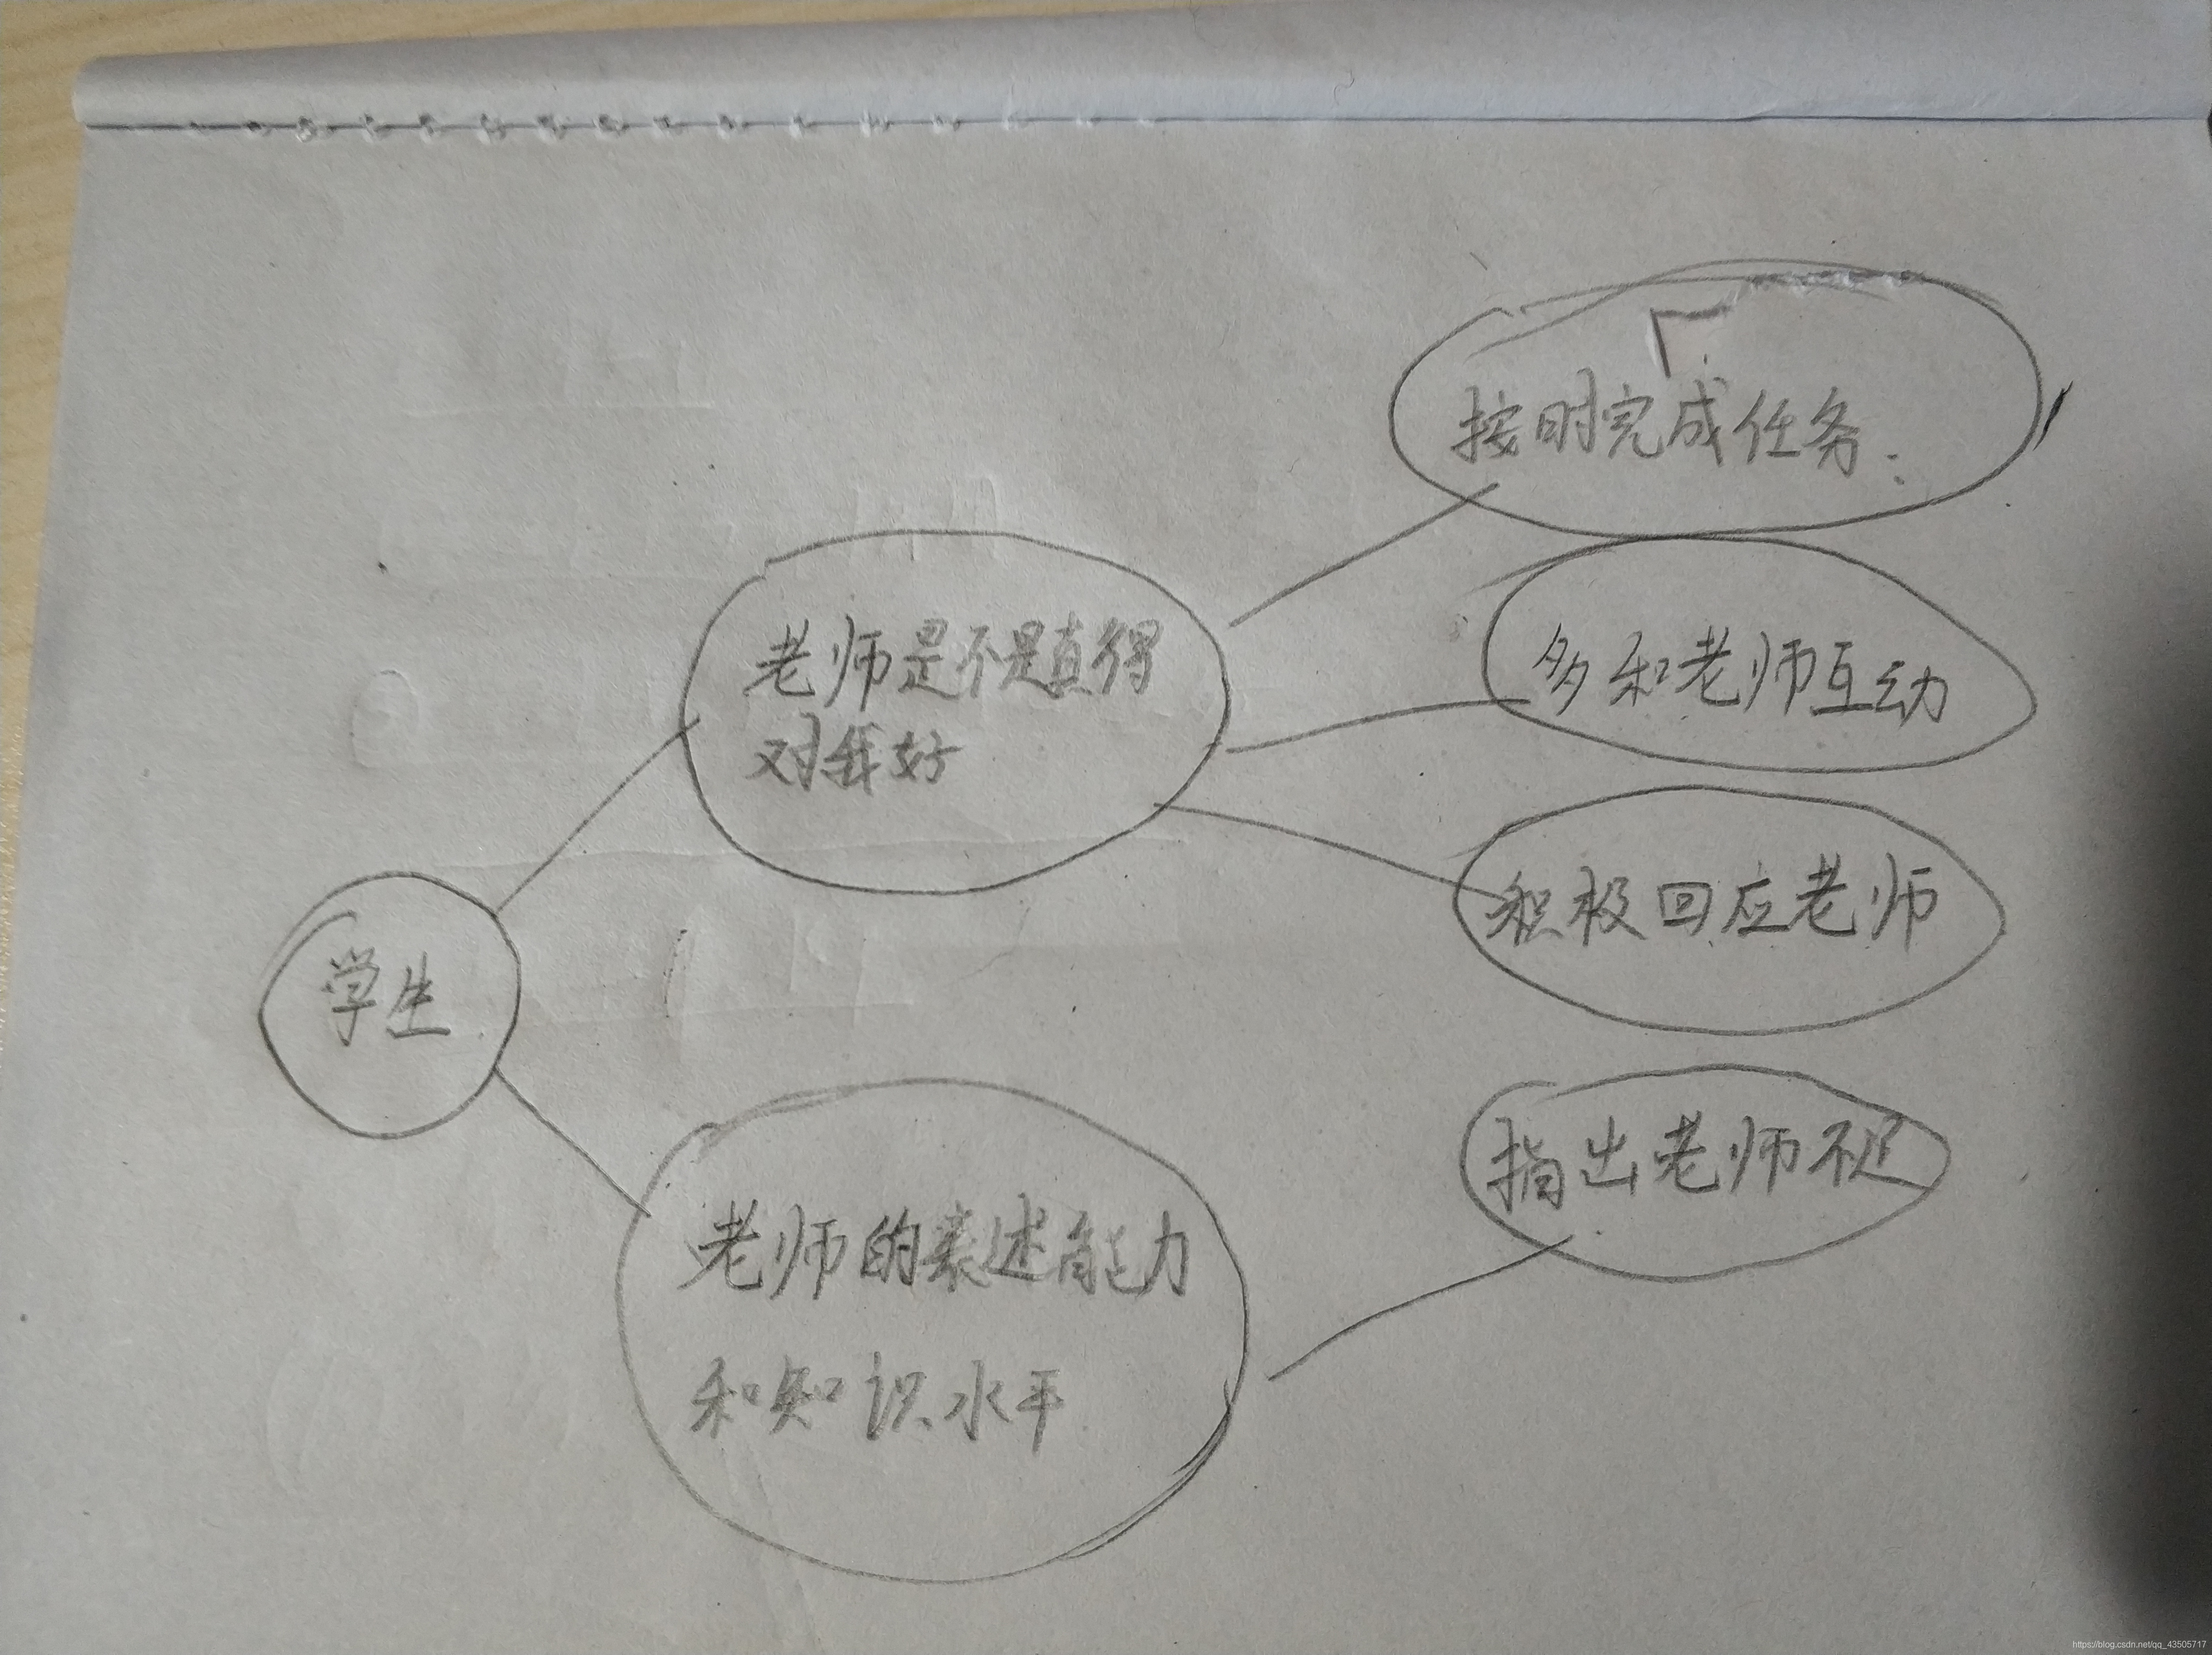 按时完成任务.
老师是不是真得
对我好
多和老师互动
积极回应老师
学生
指出老师不足
老师的表述能力
和知识水平
https://blog.csdn.net/qq_43505717